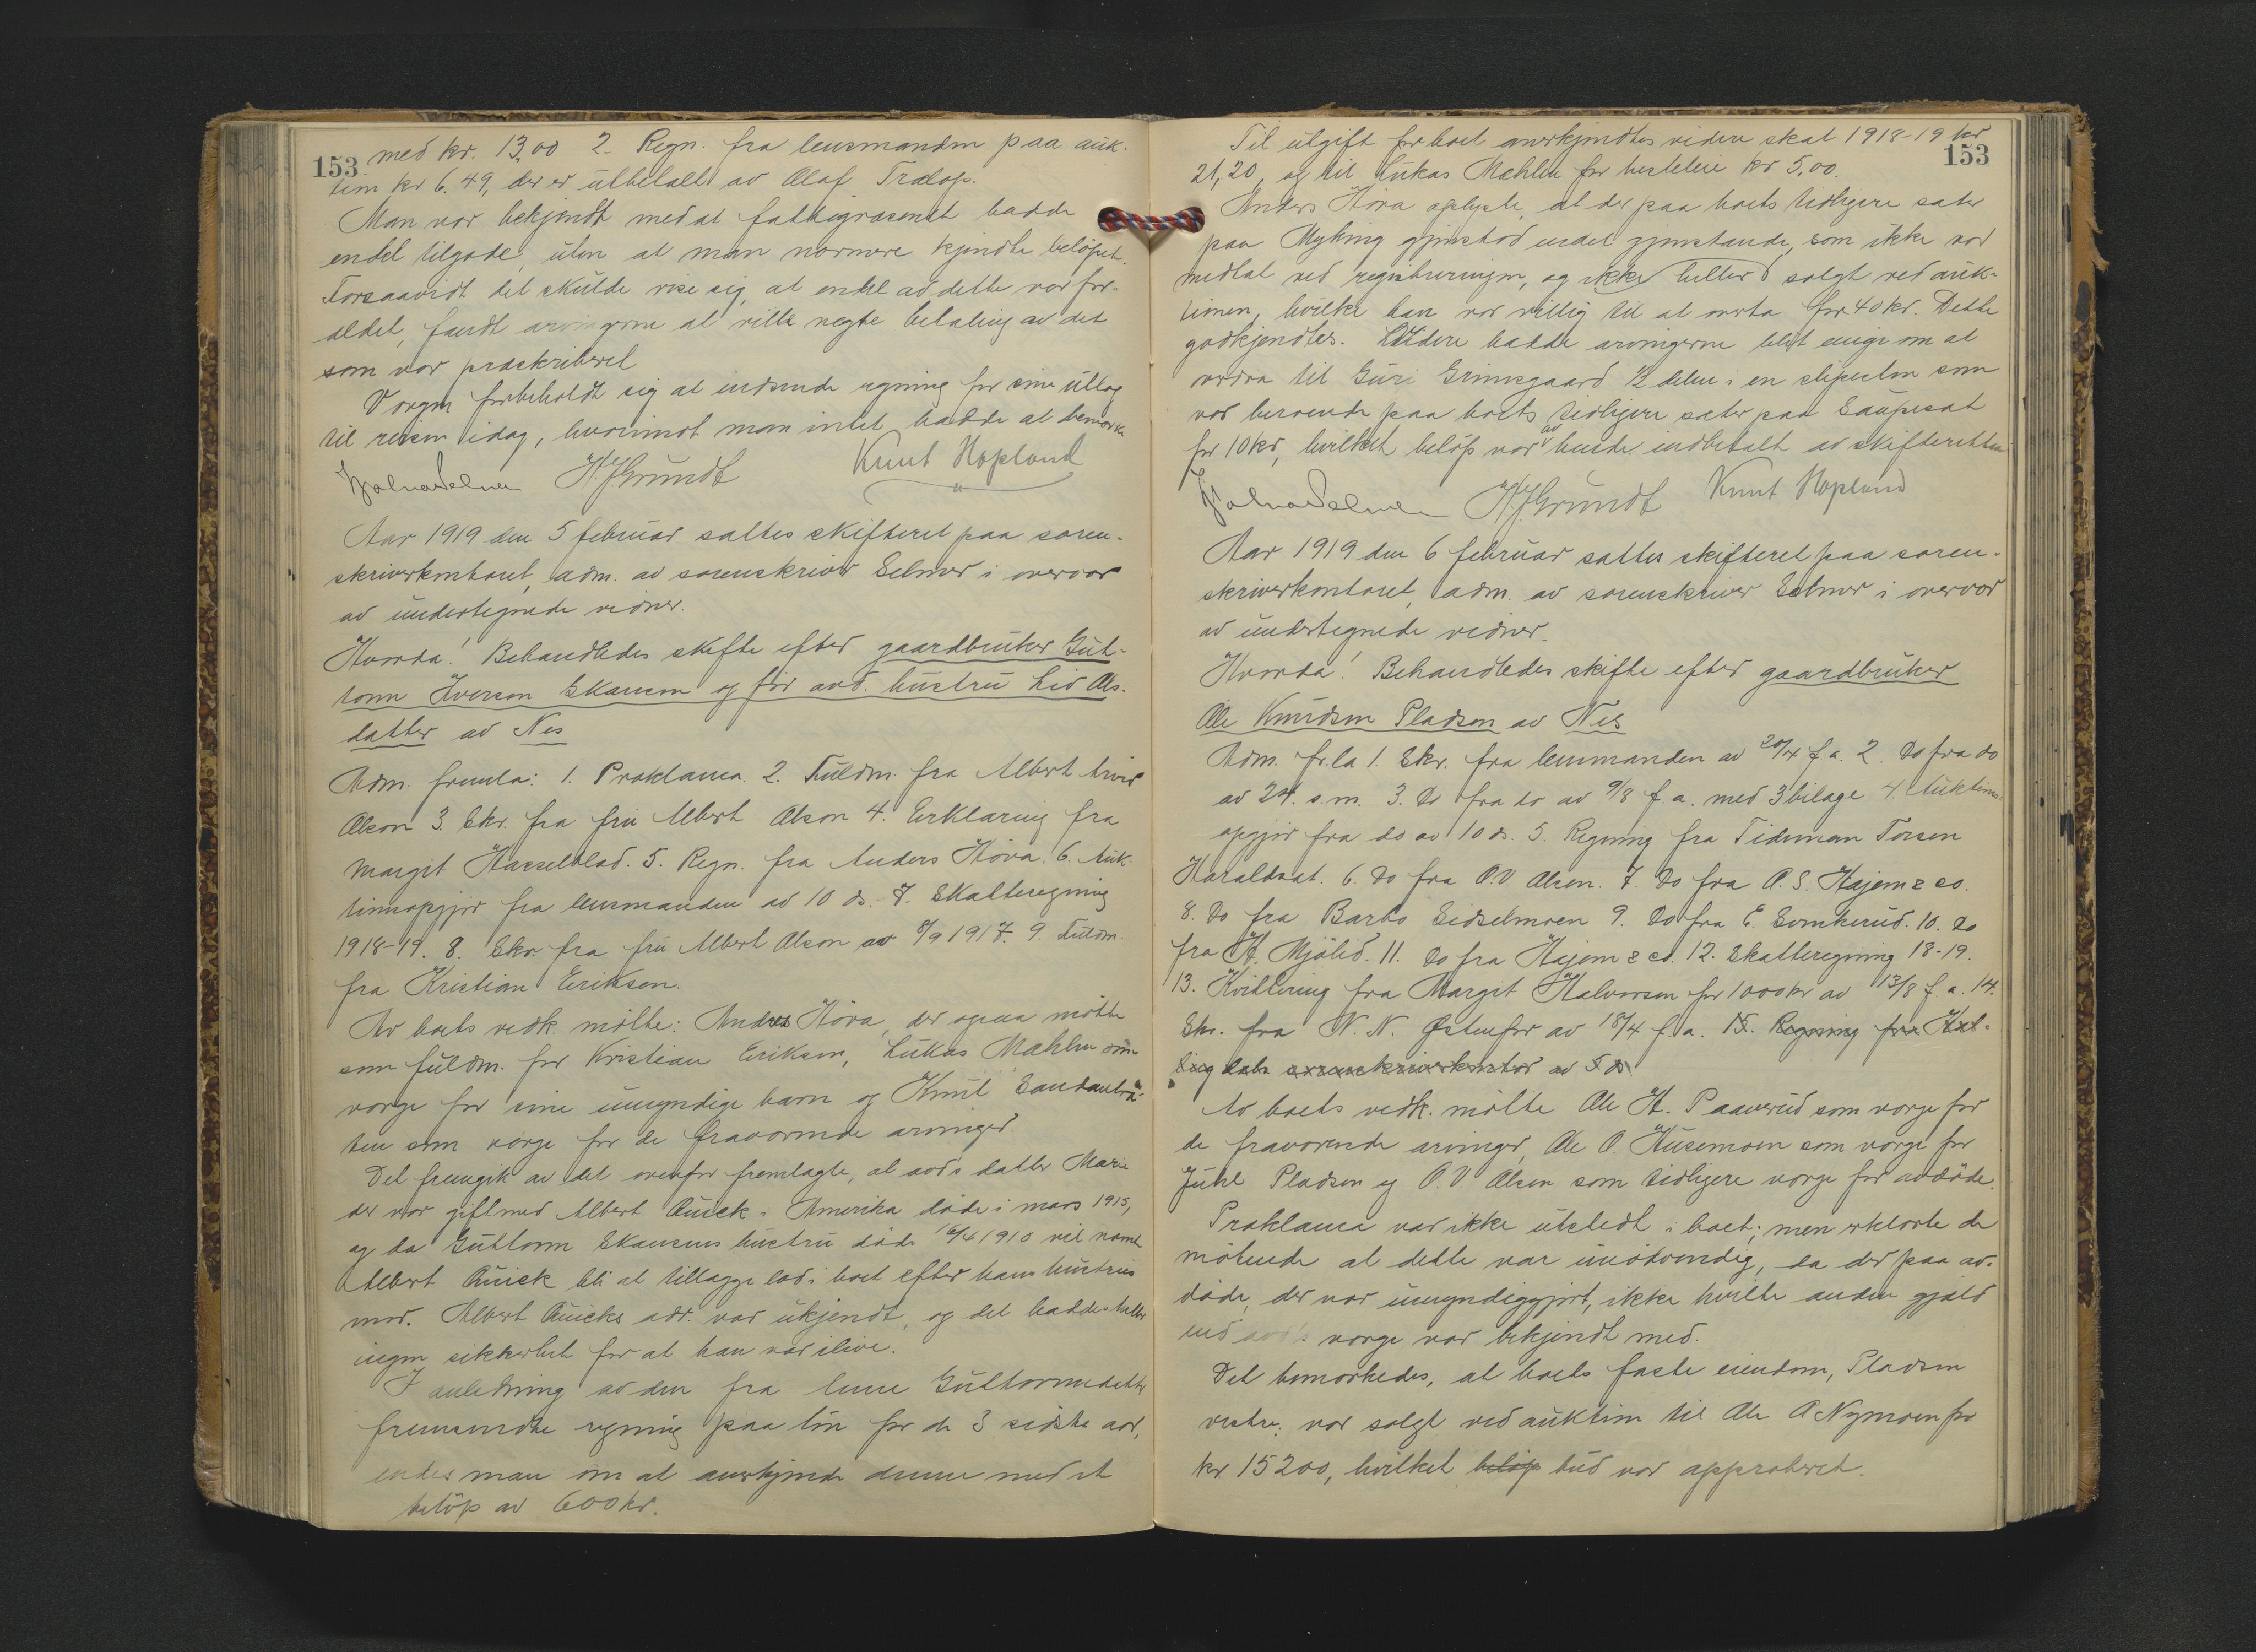 153
med kr. 13,00 2. Regn. fra lensmanden paa auk-
tion kr 6.49, der er utbetalt av Olaf Trælop.
Man var bekjendt med at fattigvæsenet hadde
endel tilgode, uten at man nærmere kjendte beløpet.
Forsaavidt det skulde vise sig, at endel av dette var for-
ældet, fandt arvingerne at ville negte betaling av det
som var præskriberet
Vorgen forbeholdt sig at indsende regning for sine utlæg
til reisen idag, hvorimot man intet hadde at bemærke
H.J.Grundt Knut Hopland
Aar 1919 den 5 februar sattes skifteret paa soren-
skriverkontoret, adm. av sorenskriver Selmer i overvær
av undertegnede vidner.
Hvorda! Behandledes skifte efter gaardbruker Gut-
torm Iverson Skansen og før avd. hustru Liv Ols-
datter av Nes
Adm. fremla: 1. Proklama 2. Fuldm. fra Albert Arvid
Olson 3. Skr. fra fru Albert Olson 4. Erklæring fra
Margit Hasselblad. 5. Regn. fra Anders Höva. 6. Auk-
tionsopgjør fra lensmanden av 10 ds. 7. Skatteregning
1918-19. 8. Skr. fra fru Albert Olson av 8/9 1917. 9. Fuldm.
fra Kristian Eriksen.
Av boets vedk. mötte: Anders Höva, der ogsaa mötte
som fuldm. for Kristian Eriksen, Lukas Mæhlen som
vorge for sine umyndige barn og Knut Sandaabrå-
ten som vorge for de fraværende arvinger.
Det fremgik av det ovenfor fremlagte, at avd's datter Marie
der var gift med Albert Quick i Amerika döde i mars 1915,
og da Guttorm Skansens hustru döde 16/6 1910 vil nævnte
Albert Quick bli at tillægge lod i boet efter hans hustrus
mor. Albert Quicks adr. var ukjendt, og det haddes heller
ingen sikkerhet for at han var ilive.
I anledning av den fra Guttormsdatter
fremsendte regning paa lön for de 3 sidste aar,
enedes man om at anerkjende denne med et
belöp av 600 kr.
153
Til utgift for boet anerkjendtes videre skat 1918-19 kr
21,20, og til Lukas Mæhlen for hesteleie kr 5,00.
Anders Höva oplyste, at der paa boets tidligere sæter
paa Myking gjenstod endel gjenstande, som ikke var
medtat ved registreringen, og ikke heller solgt ved auk-
tionen, hvilke han var villig til at overta for 40 kr. Dette
godkjendtes. Videre hadde arvingerne blit enige om at
overdra til Guri Grimsgaard 1/2 delen i en slipesten som
var beroende paa boets tidligere sæter paa Saupeset
for 10 kr, hvilket belöp var av hende indbetalt av skifteretten
H.J.Grundt Knut Hopland
Aar 1919 den 6 februar sattes skifteret paa soren-
skriverkontoret, adm. av sorenskriver Selmer i overvær
av undertegnede vidner.
Hvorda! Behandledes skifte efter gaardbruker
Ole Knudsen Pladsen av Nes
Adm. fr.la 1. Skr. fra lensmanden av 20/4 f.a. 2. Do fra do
av 24. s.m. 3. Do fra do av 9/8 f.a. med 3 bilage 4. Auktions-
opgjør fra do av 10 ds. 5. Regning fra Tideman Torsen
Haraldset. 6. Do fra O.V. Olsen. 7. Do fra O.S. Hajem & co.
8. Do fra Barbo Sidselmoen 9. Do fra E. Svenkerud. 10. Do
fra H. Mjöbed. 11. Do fra Hajem & co. 12. Skatteregning 18-19.
13. Kvittering fra Margit Halvorsen for 1000 kr av 13/8 f.a. 14.
Skr. fra N.N. Østenfor av 18/4 f.a. 15. Regning fra Hal-
lingdals sorenskriverkontor av 5 ds.
Av boets vedk. mötte Ole H. Paaverud som vorge for
de fraværende arvinger, Ole O. Husemoen som vorge for
Juhl Pladsen og O.V. Olsen som tidligere vorge for avdöde.
Proklama var ikke utstedt i boet; men erklærte de
mötende at dette var unödvendig, da der paa av-
döde, der var umyndiggjort, ikke hvilte anden gjæld
end avd's vorge var bekjendt med.
Det bemærkedes, at boets faste eiendom, Pladsen
vestre, var solgt ved auktion til Ole A Nymoen for
kr 15200, hvilket belöp bud var approberet.